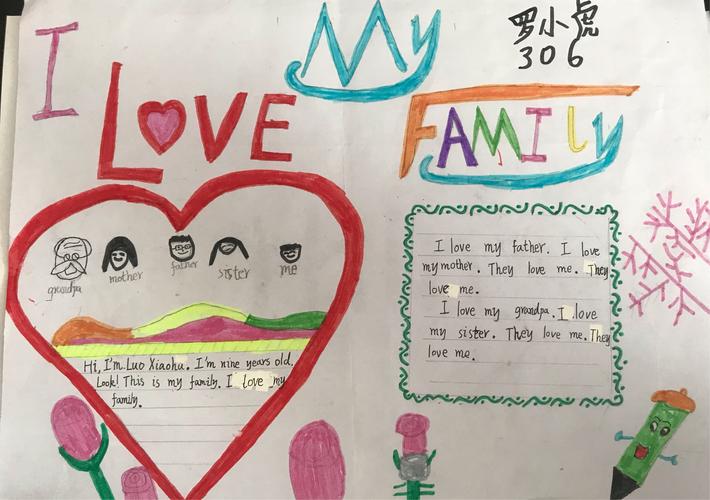 I LOVE
My
FAMILY
罗小虎
306
grandpa
mother
father
sister
me
Hi, I'm Luo Xiaohu. I'm nine years old.
Look! This is my family. I love my
family.
I love my father. I love
my mother. They love me. They
love me.
I love my grandpa. I love
my sister. They love me. They
love me.